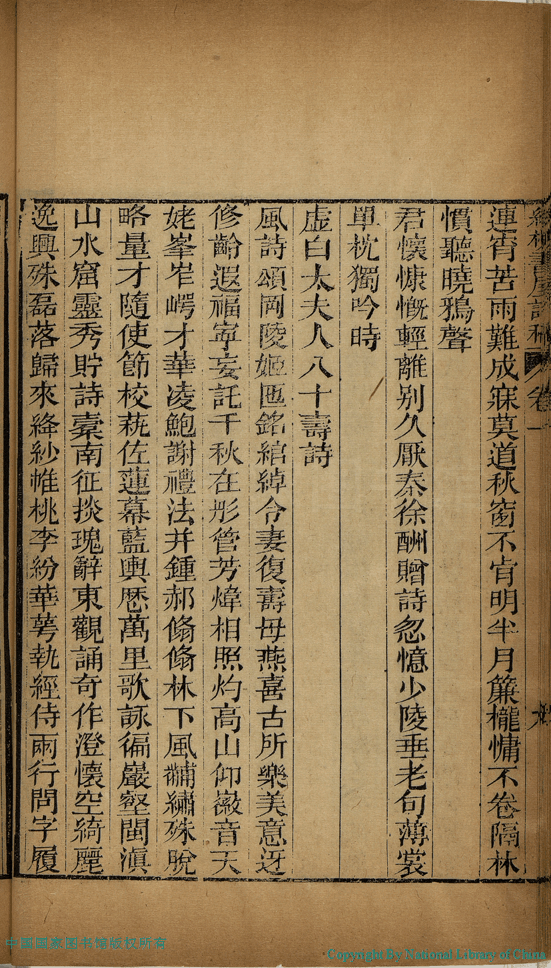 連宵苦雨難成寐莫道秋窗不肯明半月簾櫳慵不卷隔林
慣聽曉鴉聲
君懷慷慨輕離別久厭秦徐酬贈詩忽憶少陵垂老句薄裳
單枕獨吟時
虛白太夫人八十壽詩
風詩頌岡陵姬匜銘綰綽令妻復壽母燕喜古所樂美意迓
修齡遐福寧妄託千秋在彤管芳煒相照灼高山仰徽音天
姥峯岝崿才華凌鮑謝禮法并鍾郝翛翛林下風黼繡殊脫
略量才隨使節校藝佐蓮幕藍輿歷萬里歌詠徧巖壑閩滇
山水窟靈秀貯詩橐南征掞瑰辭東觀誦奇作澄懷空綺麗
逸興殊磊落歸來絳紗帷桃李紛華萼執經侍兩行問字履
中國國家图书馆版权所有
Copyright By National Library of China